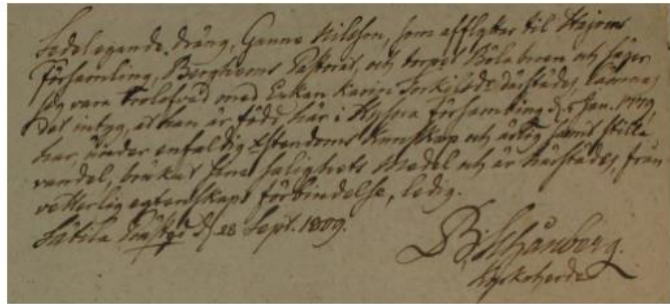 Sedelegande Dräng, Gunne Nilsson, som afflyttar til
Församling, Berghems Pastorat, och torpet och säger
sig vara trolofvad med Enkan Karin därstädes, lämnas
det intyg, at han är född här i Hyssna Församling d. 5 Jan. 1779,
har, under enfaldig Kunskap och ärlig samt stilla
vandel, brukat sina salighets Medel och är härstädes, från
vetterlig egtenskaps förbindelse, ledig.
Sätila d. 28 Sept. 1809.
B. Schånberg.
Kyrkoherde